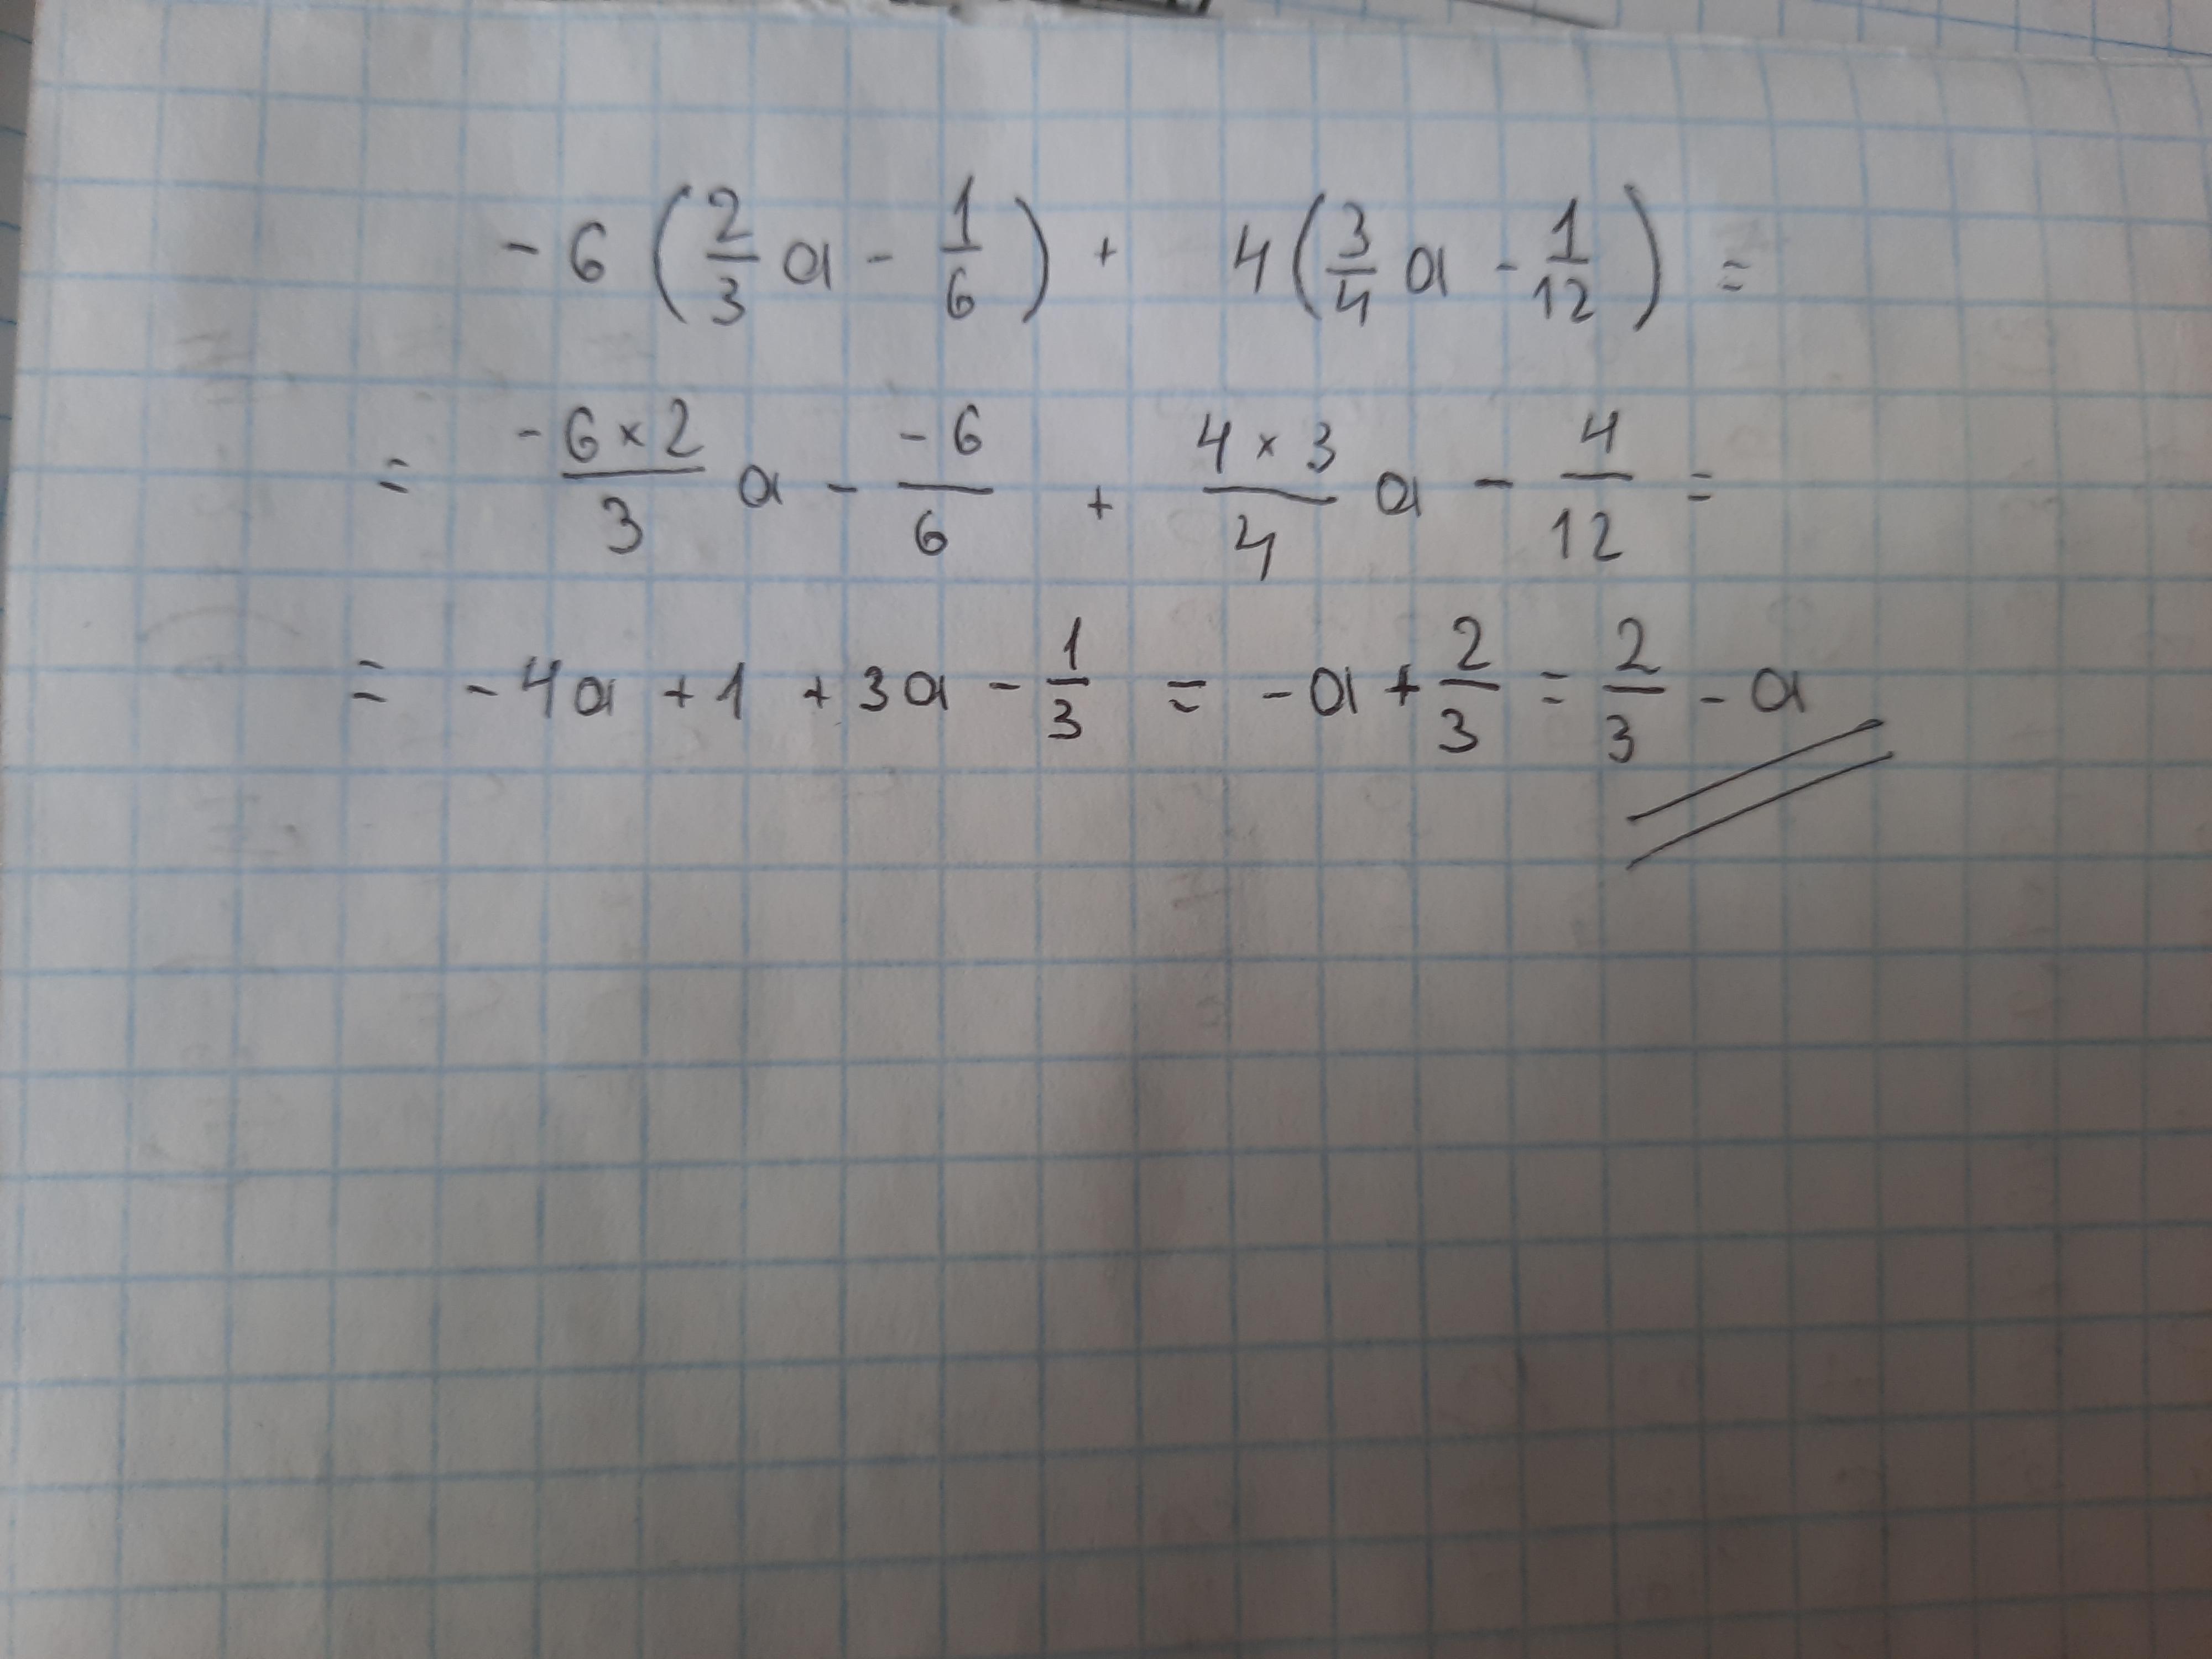 -6(2/3 a - 1/6) + 4(3/4 a - 1/12) =
= -6×2/3 a - -6/6 + 4×3/4 a - 4/12 =
= -4a + 1 + 3a - 1/3 = -a + 2/3 = 2/3 - a